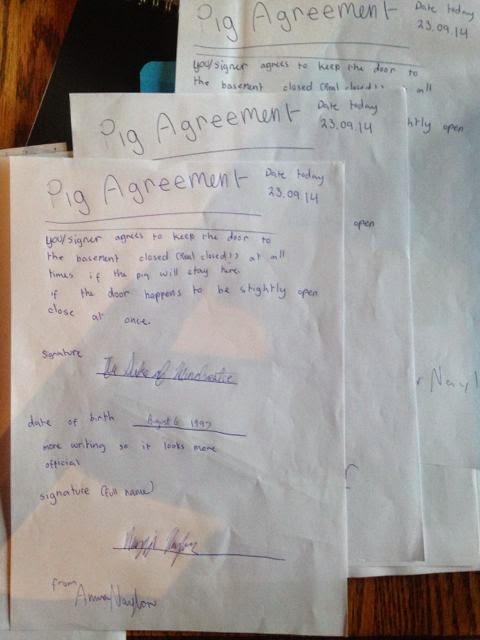 Pig Agreement
Date today
23.09.14
you/signer agrees to keep the door to
the basement closed (Real closed!) all
htly open
Pig Agreement
Date today
23.09.14
open
Pig Agreement
Date today
23.09.14
you/signer agrees to keep the door to
the basement closed (Real closed!) at all
times if the pig will stay here.
if the door happens to be slightly open
close at once.
signature
The Duke of
date of birth August 6 1997
more writing so it looks more
official
signature (full name)
from
Nayl